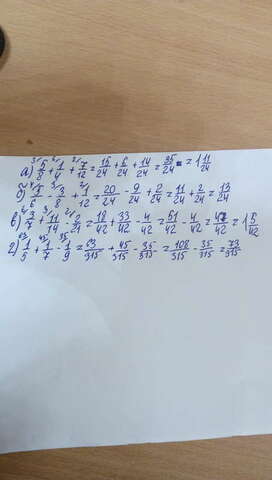 а) 5/8 + 1/4 + 7/12 = 15/24 + 6/24 + 14/24 = 35/24 = 1 11/24
б) 5/6 - 3/8 + 1/12 = 20/24 - 9/24 + 2/24 = 11/24 + 2/24 = 13/24
в) 3/7 + 11/14 - 2/21 = 18/42 + 33/42 - 4/42 = 51/42 - 4/42 = 47/42 = 1 5/42
г) 1/5 + 1/7 - 1/9 = 63/315 + 45/315 - 35/315 = 108/315 - 35/315 = 73/315